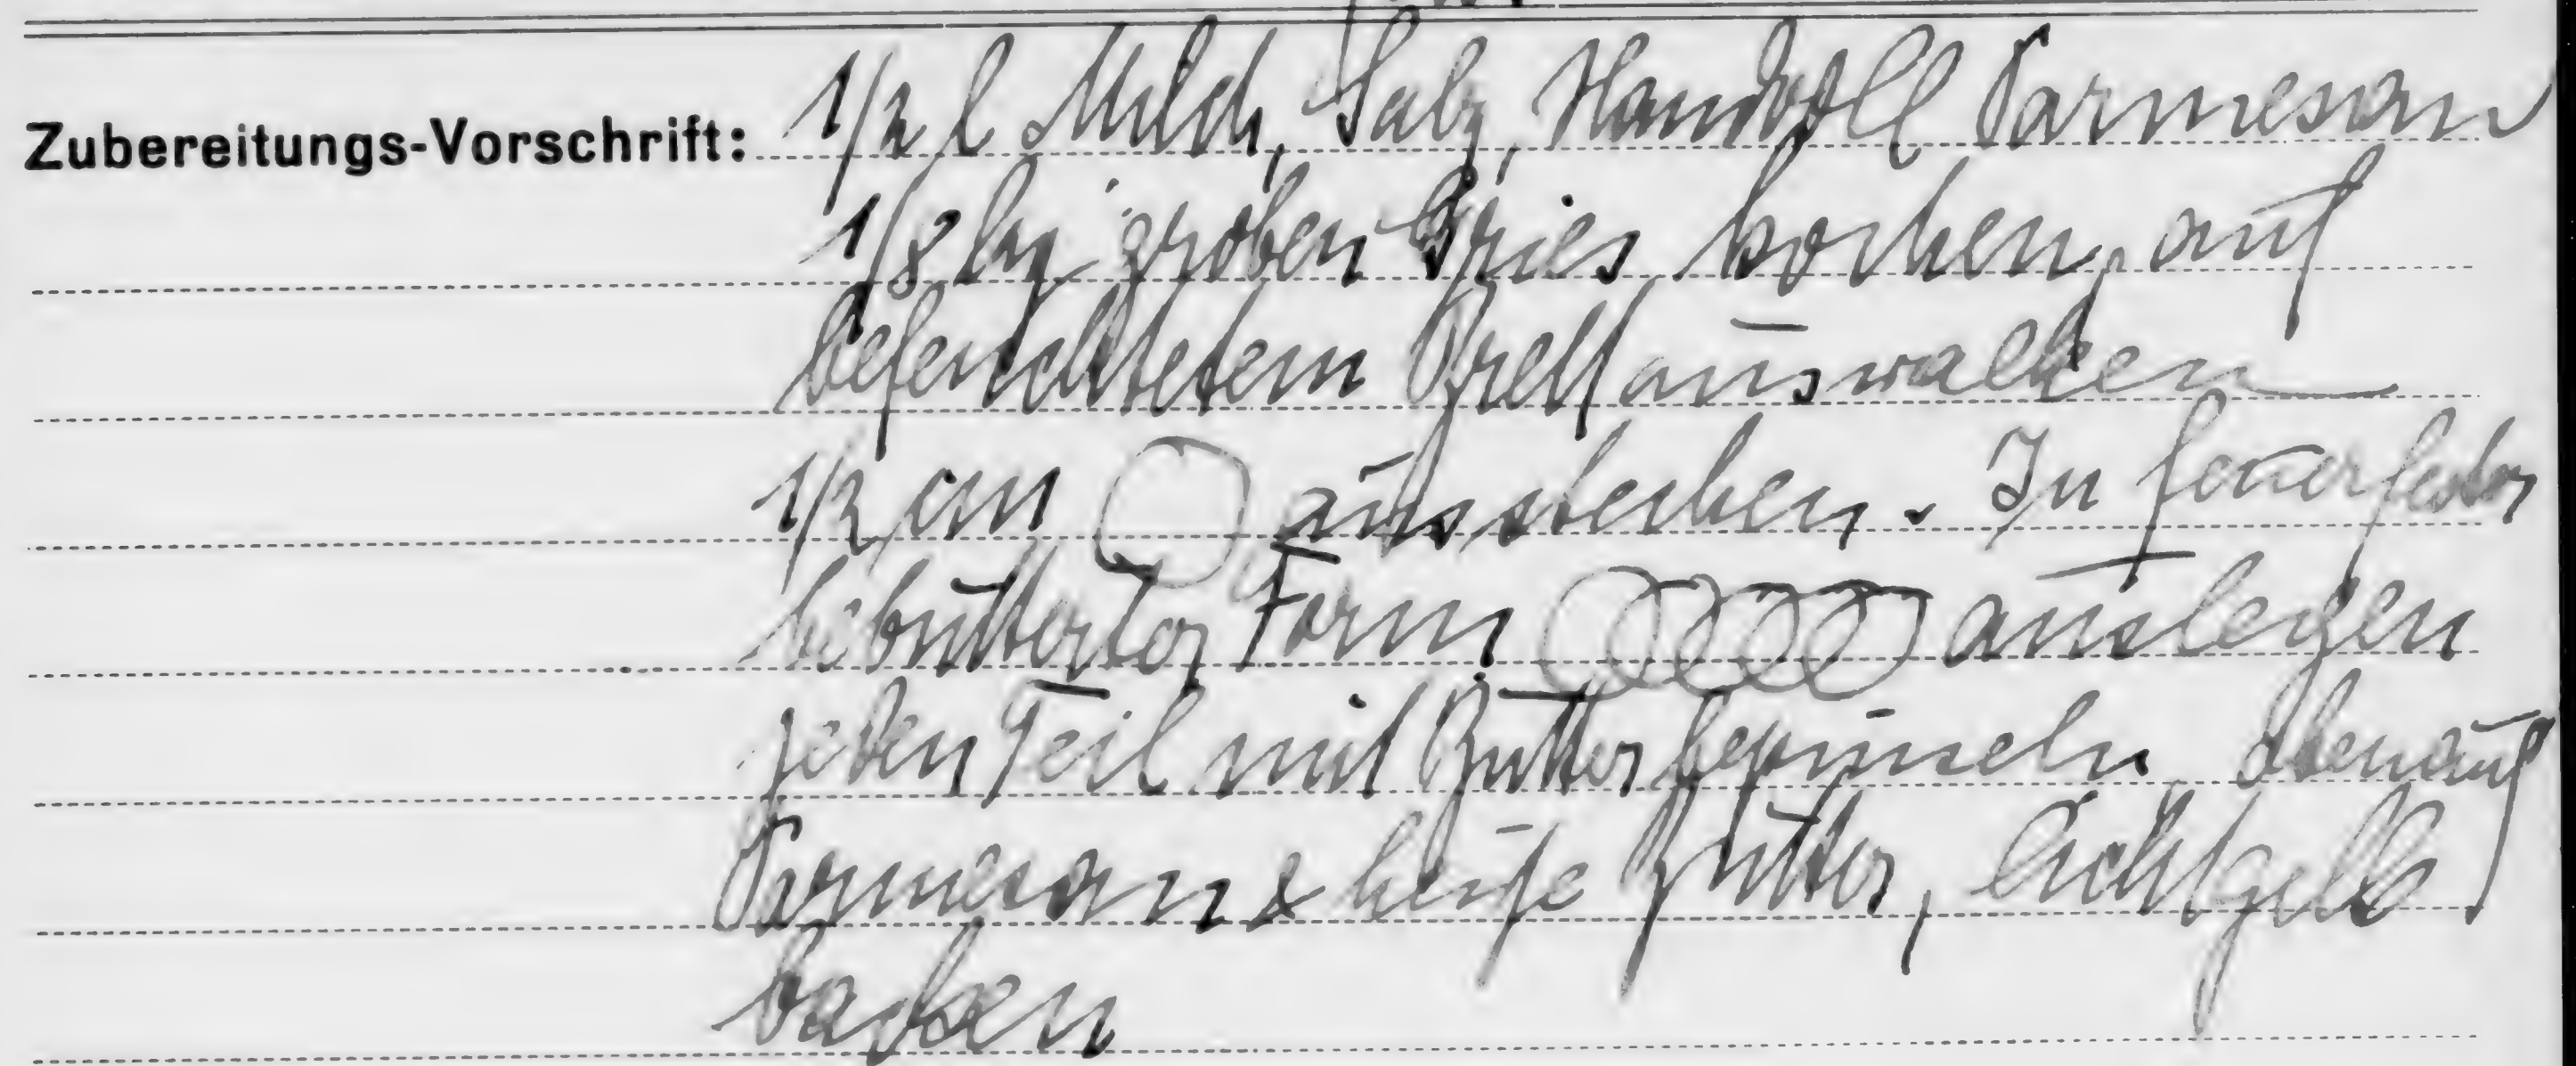 Zubereitungs-Vorschrift: 1/2 l Milch, Salz, Handvoll Parmesan
1/8 kg groben Gries kochen, auf
befeuchtetem Brett auswalken
1/2 cm ausstechen. In feuerfester
bebutterter Form auslegen
jeden Teil mit Butter bepinseln, obenauf
Parmesan & heiße Butter, lichtgelb
backen